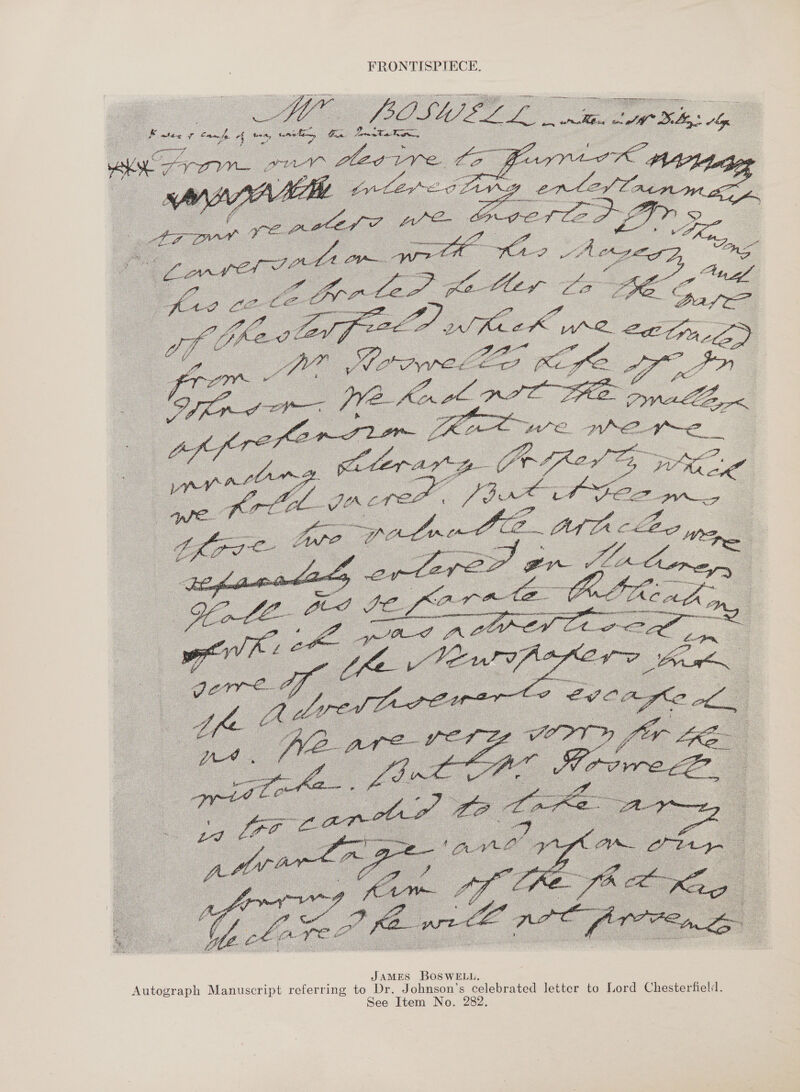 FRONTISPIECE.
Mr BOSWELL – written in Mr Dilly's shop
of my writing the Imitation.
*** From our desire to furnish
interesting entertainment
to our readers we inserted Dr Johnson's
Conversation with his Majesty and
his celebrated Letter to the Earl
of Chesterfield which we extracted
from Mr Boswell's Life of Dr
Johnson. We had not the smallest
apprehension that we were
invading Literary Property which
we hold sacred. But it seems
those two valuable articles were
separately entered in Stationers
Hall as separate Publications
which was advertised in
some of the Newspapers but
the Advertisements escaped
us. We are very sorry for the
mistake. But Mr Boswell
is too candid to take any
advantage and upon our
assuring him of the fact has
declared he will not prosecute
JAMES BOSWELL.
Autograph Manuscript referring to Dr. Johnson's celebrated letter to Lord Chesterfield.
See Item No. 282.